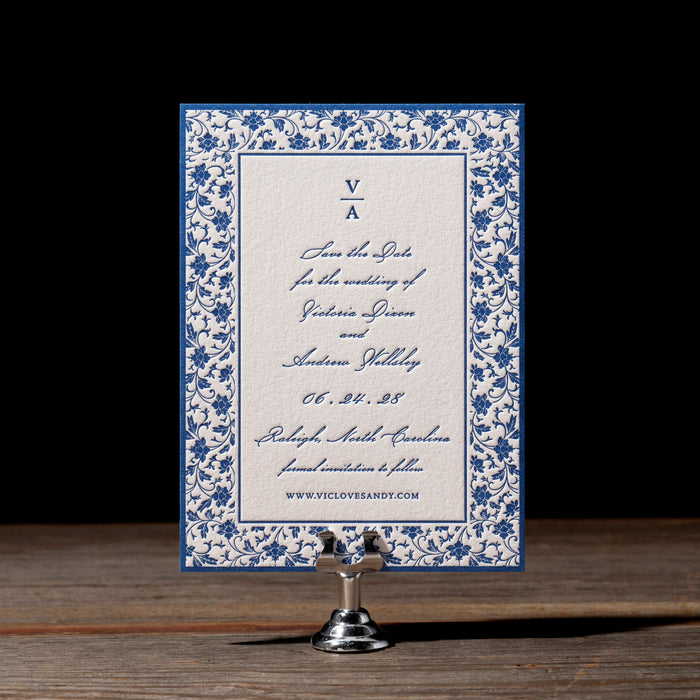 V
A
Save the Date
for the wedding of
Victoria Dixon
and
Andrew Wellsley
06.24.28
Raleigh, North Carolina
formal invitation to follow
WWW.VICLOVESANDY.COM